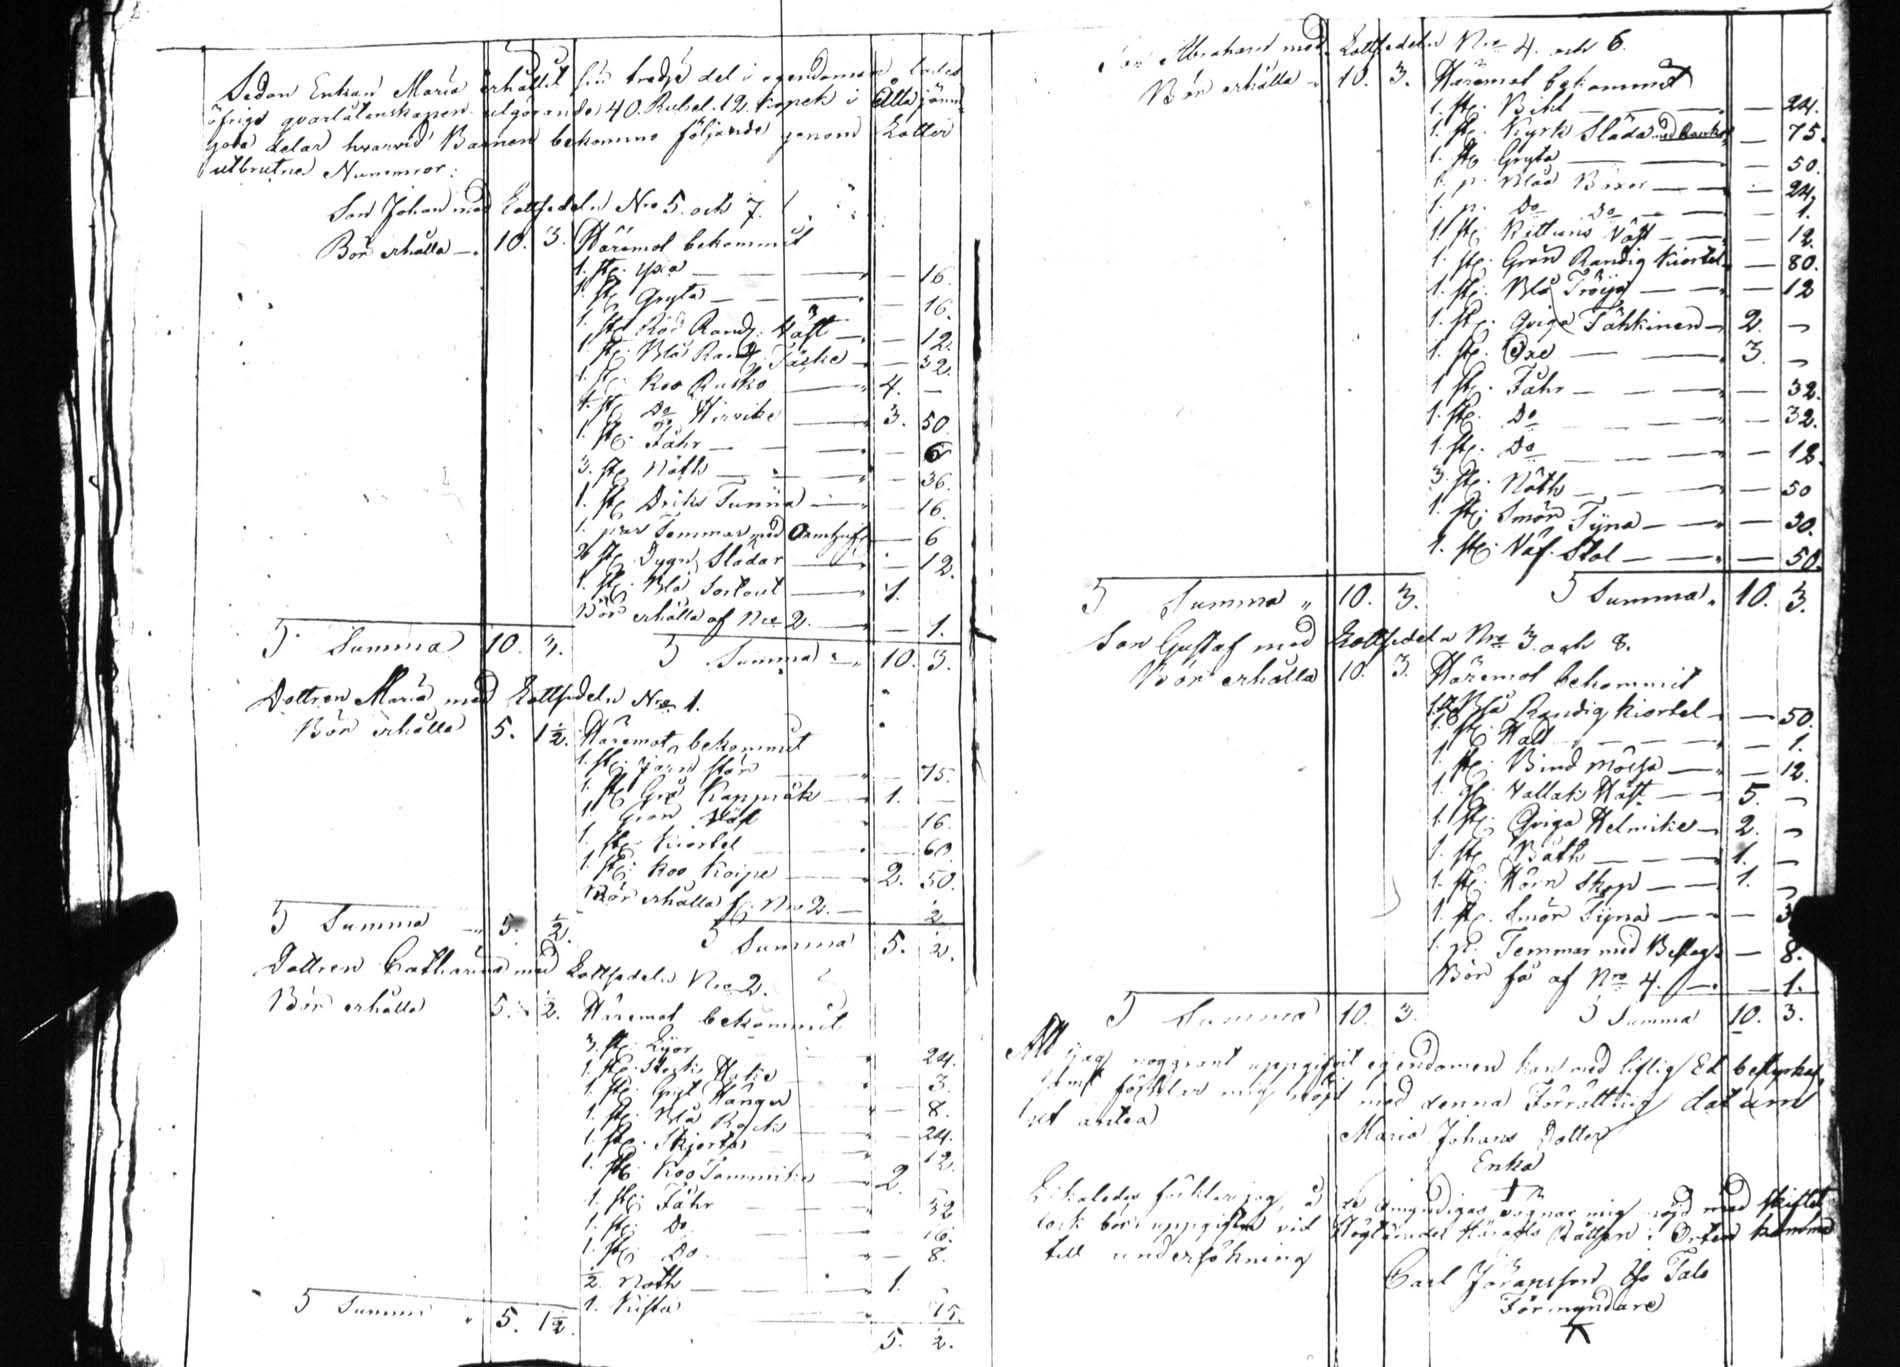 Sedan Enkan Maria erhållit sin tredje del i egendomen, lades
öfrige qvarlåtenskapen utgörande 40. Rubel. 12. Kopek i Åtta jämn
goda delar hvarvid Barnen bekommo följande genom Lotter
utbrutne Nummror:
Son Johan med Lottsedeln Nro 5. och 7.
Bör erhålla — 10. 3. Häremot bekommit
1. st. yxa — — 16.
1. st. Gryta — — 16.
1. st. Röd Rand. Väst — — 12.
1. st. Blå Rand. — 32.
1. st. Koo Rusko — 4. —
1. st. Do Hirvike — 3. 50.
1. st. Fåhr — — 6
3. st. Nöth — — 36.
1. st. Driks Tunna — — 16.
1. par Tömmar med — 6
2 st. Dygn Slädar — 12.
1. st. Blå Sortout — 1.
Bör erhålla af Nro 2. — 1.
Summa 10. 3. Summa 10. 3.
Dottren Maria med Lottsedeln Nro 1.
Bör erhålla 5. 1½. Häremot bekommit
1. st. Jern stör 75.
1. st. Grå Kappråk — 1. —
1. Grön Väst 16.
1. st. Kiortel 60.
1. st. Koo Koipe — 2. 50.
Bör erhålla af Nro 2. — ½
Summa 5. ½. Summa 5. ½.
Dottren Catharina med Lottsedeln Nro 2.
Bör erhålla 5. ½. Häremot bekommit
3. st. Lijor 24.
1. st. Hake — 3.
1. st. Gryt Hänger — 8.
1. st. Blå Rock — 24.
1. st. Skjorta 12.
1. st. Koo Tammike 2.
1. st. Fåhr 32
1. st. Do 16.
1. st. Do — 8.
½ Noth 1.
1. Kista 75.
Summa 5. 1½. 5. ½.
Son Abraham med Lottsedeln Nro 4. och 6.
Bör erhålla 10. 3. Häremot bekommit
1. st. Bihl — 24.
1. st. Kyrk Släda med — 75.
1. st. Gryta — 50.
1. p. Blåa Böxor — 24.
1. p. Do Do — 1.
1. st. Kattuns Väst — 12.
1. st. Grön Randig Kiortel — 80.
1. st. Blå Tröija — 12
1. st. Qviga Tähkinen — 2. —
1. st. Oxe — 3. —
1. st. Fåhr — 32.
1. st. Do — 32.
1. st. Do — 12.
3. st. Nöth — 50
1. st. Smör Tyna — 30.
1. st. Väf Stol — 50.
Summa 10. 3. Summa 10. 3.
Son Gustaf med Lottsedeln Nro 3. och 8.
Bör erhålla 10. 3. Häremot bekommit
1. st. Blå Randig Kiortel — 50.
1. st. Hatt — 1.
1. st. Bind mössa — 12.
1. st. Vallak Häst — 5. —
1. st. Qviga Helmike — 2. —
1. st. Båth — 1. —
1. st. Hörn Skåp — 1. —
1. st. Smör Tyna —
1. p. Temmar med Beslag — 8.
Bör få af Nro 4. — 1.
Summa 10. 3. Summa 10. 3.
Att jag noggrant uppgifvit egendomen kan med liflig Ed bestyrkas,
samt förklar mig nöjd med denna Förrättning datum
ut antea
Maria Johans Dotter
Enka
Likaledes förklar jag, å de omyndigas vägnar mig nöjd med skiftet
dock bör uppgiften vid Höglundet Härads Rätten i Orten komma
till undersökning
Carl Jöransson Tals
Förmyndare